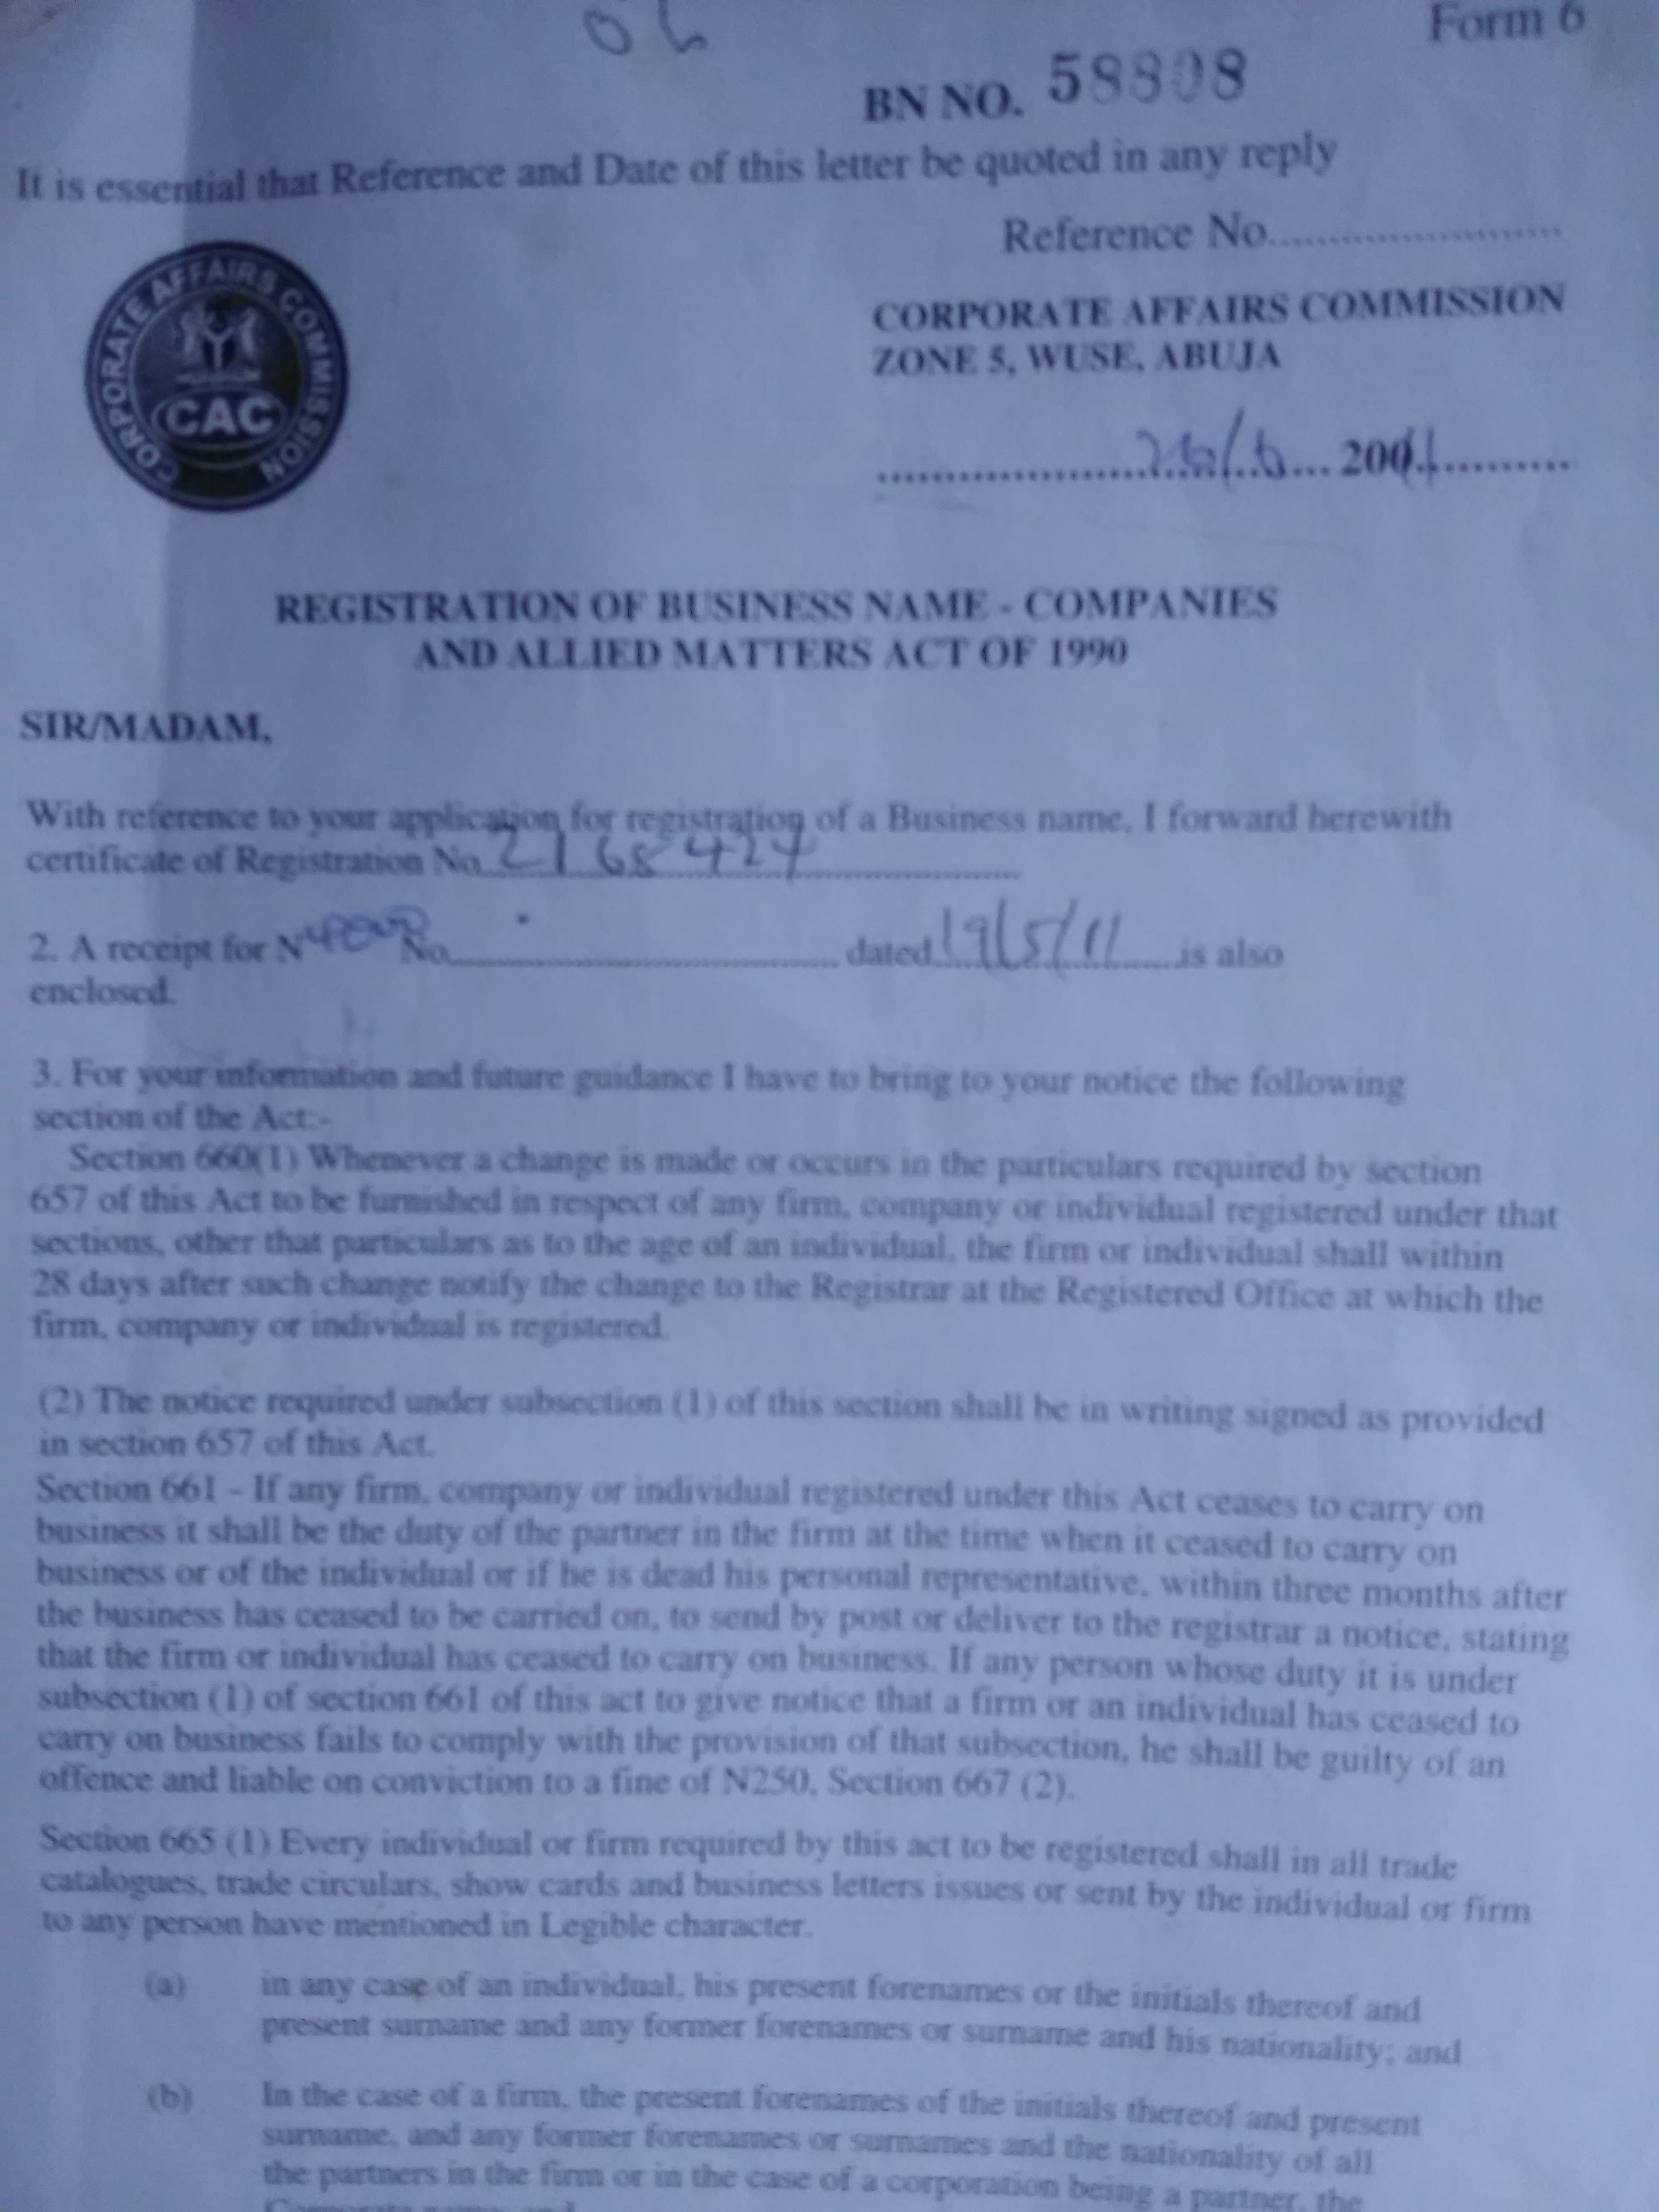 Form 6
BN NO. 58808
It is essential that Reference and Date of this letter be quoted in any reply
Reference No..........................
CORPORATE AFFAIRS COMMISSION
CAC
CORPORATE AFFAIRS COMMISSION
ZONE 5, WUSE, ABUJA
200
REGISTRATION OF BUSINESS NAME - COMPANIES
AND ALLIED MATTERS ACT OF 1990
SIR/MADAM,
With reference to your application for registration of a Business name, I forward herewith
certificate of Registration No. 2168424
2. A receipt for N No. dated 19/5/11 is also
enclosed.
3. For your information and future guidance I have to bring to your notice the following
section of the Act:-
Section 660(1) Whenever a change is made or occurs in the particulars required by section
657 of this Act to be furnished in respect of any firm, company or individual registered under that
sections, other that particulars as to the age of an individual, the firm or individual shall within
28 days after such change notify the change to the Registrar at the Registered Office at which the
firm, company or individual is registered.
(2) The notice required under subsection (1) of this section shall be in writing signed as provided
in section 657 of this Act.
Section 661 - If any firm, company or individual registered under this Act ceases to carry on
business it shall be the duty of the partner in the firm at the time when it ceased to carry on
business or of the individual or if he is dead his personal representative, within three months after
the business has ceased to be carried on, to send by post or deliver to the registrar a notice, stating
that the firm or individual has ceased to carry on business. If any person whose duty it is under
subsection (1) of section 661 of this act to give notice that a firm or an individual has ceased to
carry on business fails to comply with the provision of that subsection, he shall be guilty of an
offence and liable on conviction to a fine of N250, Section 667 (2).
Section 665 (1) Every individual or firm required by this act to be registered shall in all trade
catalogues, trade circulars, show cards and business letters issues or sent by the individual or firm
to any person have mentioned in Legible character.
(a) in any case of an individual, his present forenames or the initials thereof and
present surname and any former forenames or surname and his nationality; and
(b) In the case of a firm, the present forenames of the initials thereof and present
surname, and any former forenames or surnames and the nationality of all
the partners in the firm or in the case of a corporation being a partner, the